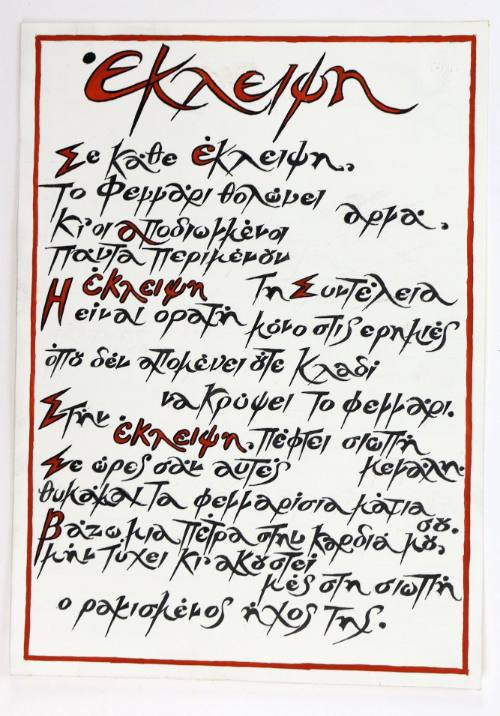 Έκλειψη
Σε κάθε έκλειψη,
Το Φεγγάρι θολώνει αργά,
Κι οι αποδιωγμένοι
Πάντα Περιμένουν
Τη Συντέλεια
Η έκλειψη
είναι ορατή μόνο στις ερημιές
όπου δέν απομένει ούτε Κλαδί
να Κρύψει Το φεγγάρι.
Στήν έκλειψη, πέφτει σιωπή
μεγάλη.
Σε ώρες σάν αυτές
θυμάμαι Τα φεγγαρίσια μάτια
σου.
Βάζω μια Πέτρα στην Καρδιά μου,
μήν Τύχει Κι ακουστεί
μές στη σιωπή
ο ραγισμένος ήχος Της.